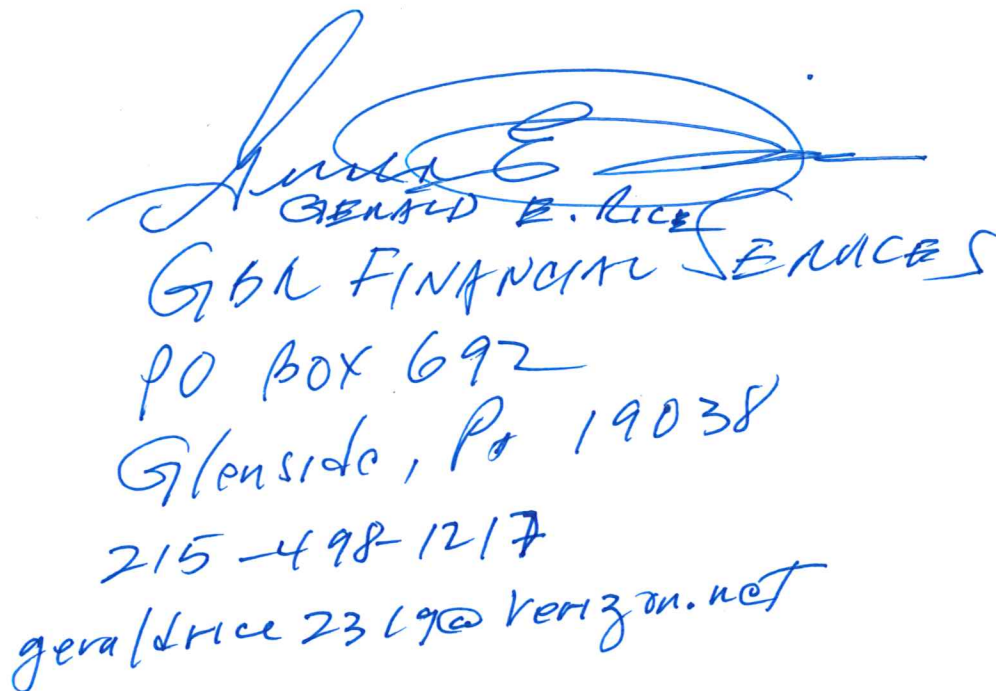 GERALD E. RICE
GBR FINANCIAL SERVICES
PO BOX 692
Glenside, Pa 19038
215-498-1217
geraldrice2319@verizon.net